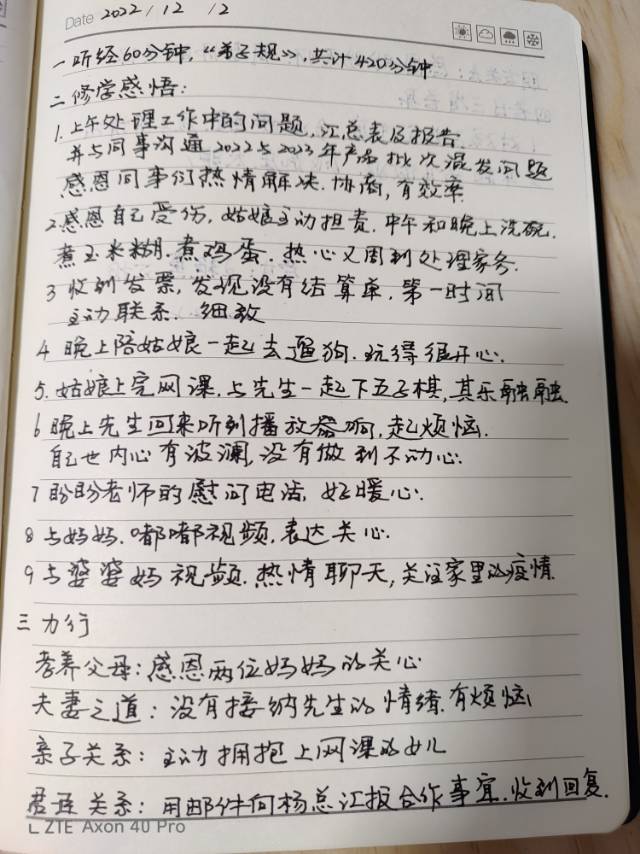 Date 2022/12/2
一 听经60分钟,“弟子规》,共计420分钟
二 修学感悟:
1. 上午处理工作中的问题,汇总表及报告
并与同事沟通2022与2023年产品批次混发问题
感恩同事们热情解决.协商,有效率.
2.感恩自己受伤,姑娘主动担责.中午和晚上洗碗.
煮玉米糊.煮鸡蛋.热心又周到处理家务.
3 收到发票,发现没有结算单,第一时间
主动联系. 细致
4 晚上陪姑娘一起去遛狗.玩得很开心.
5. 姑娘上完网课,与先生一起下五子棋,其乐融融.
6 晚上先生回来听到播放器响,起烦恼.
自己也内心有波澜,没有做到不动心.
7 盼盼老师的慰问电话,好暖心.
8 与妈妈.嘟嘟视频,表达关心.
9 与婆婆妈视频.热情聊天,关注家里的疫情.
三 力行
孝养父母:感恩两位妈妈的关心
夫妻之道:没有接纳先生的情绪.有烦恼
亲子关系:主动拥抱上网课的女儿
关系:用邮件向杨总汇报合作事宜.收到回复.
ZTE Axon 40 Pro